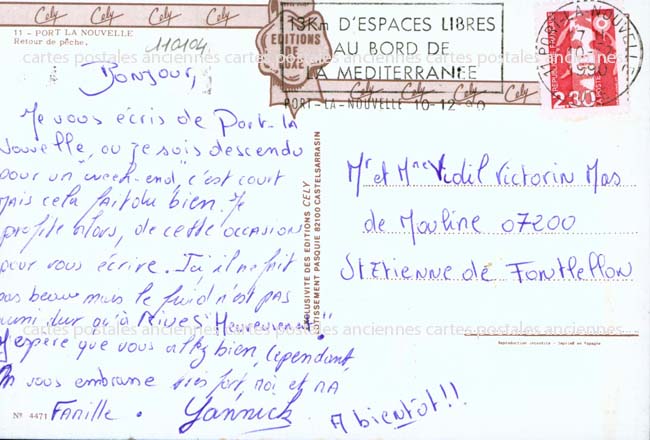 Cely Cely Cely
11 - PORT LA NOUVELLE
Retour de pêche.
110104
EDITIONS
DE
LUXE
Cely Cely Cely Cely
13Km D'ESPACES LIBRES
AU BORD DE
LA MEDITERRANEE
PORT-LA-NOUVELLE 10-12-90
PORT-LA-NOUVELLE
1990
REPUBLIQUE
LA POSTE
2,30
Bonjour,
Je vous écris de Port-la
Nouvelle, ou je suis descendu
pour un "week-end", c'est court
mais cela fait du bien. Je
profite alors, de cette occasion
pour vous écrire. Ici il ne fait
pas beau mais le froid n'est pas
aussi dur qu'à Nîmes "Heureusement"
J'espère que vous allez bien, Cependant,
On vous embrasse très fort, moi et MA
Famille. Yannick
A bientôt!!
EXCLUSIVITE DES EDITIONS CELY
LOTISSEMENT PASQUIE 82100 CASTELSARRASIN
Mr et Mme Vidil Victorin Mas
de Mouline 07200
St Etienne de Fontbellon
cartes postales anciennes cartes postales anciennes cartes postales anciennes
Reproduction interdite - Imprimé en Espagne
Nº 4471